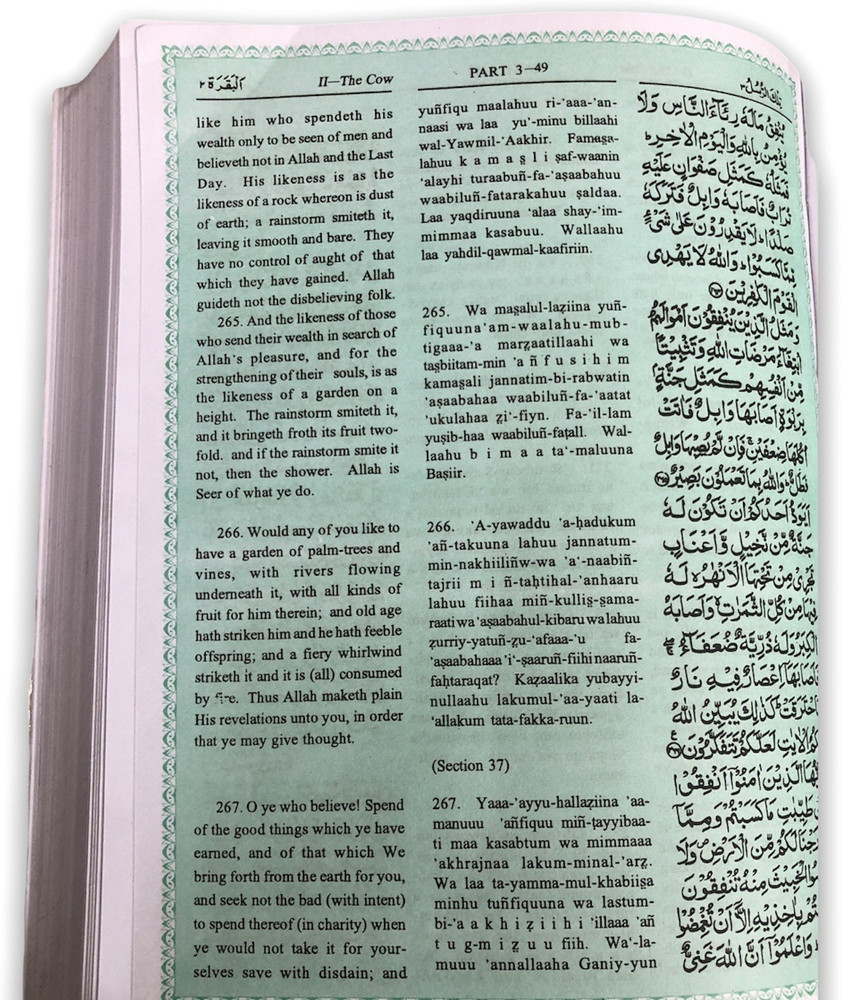 اَلْبَقَرَة ٢
II—The Cow
PART 3—49
تِلْكَ الرُّسُلُ ٣
like him who spendeth his
wealth only to be seen of men and
believeth not in Allah and the Last
Day. His likeness is as the
likeness of a rock whereon is dust
of earth; a rainstorm smiteth it,
leaving it smooth and bare. They
have no control of aught of that
which they have gained. Allah
guideth not the disbelieving folk.
265. And the likeness of those
who send their wealth in search of
Allah's pleasure, and for the
strengthening of their souls, is as
the likeness of a garden on a
height. The rainstorm smiteth it,
and it bringeth froth its fruit two-
fold. and if the rainstorm smite it
not, then the shower. Allah is
Seer of what ye do.
266. Would any of you like to
have a garden of palm-trees and
vines, with rivers flowing
underneath it, with all kinds of
fruit for him therein; and old age
hath striken him and he hath feeble
offspring; and a fiery whirlwind
striketh it and it is (all) consumed
by fire. Thus Allah maketh plain
His revelations unto you, in order
that ye may give thought.
267. O ye who believe! Spend
of the good things which ye have
earned, and of that which We
bring forth from the earth for you,
and seek not the bad (with intent)
to spend thereof (in charity) when
ye would not take it for your-
selves save with disdain; and
yuñfiqu maalahuu ri-'aaa-'an-
naasi wa laa yu'-minu billaahi
wal-Yawmil-'Aakhir. Famaṣa-
lahuu k a m a ṣ l i ṣaf-waanin
'alayhi turaabuñ-fa-'aṣaabahuu
waabiluñ-fatarakahuu ṣaldaa.
Laa yaqdiruuna 'alaa shay-'im-
mimmaa kasabuu. Wallaahu
laa yahdil-qawmal-kaafiriin.
265. Wa maṣalul-laẓiina yuñ-
fiquuna'am-waalahu-mub-
tigaaa-'a marẓaatillaahi wa
taṣbiitam-min 'a ñ f u s i h i m
kamaṣali jannatim-bi-rabwatin
'aṣaabahaa waabiluñ-fa-'aatat
'ukulahaa ẓi'-fiyn. Fa-'il-lam
yuṣib-haa waabiluñ-faṭall. Wal-
laahu b i m a a ta'-maluuna
Baṣiir.
266. 'A-yawaddu 'a-ḥadukum
'añ-takuuna lahuu jannatum-
min-nakhiiliñw-wa 'a'-naabiñ-
tajrii m i ñ-taḥtihal-'anhaaru
lahuu fiihaa miñ-kulliṣ-ṣama-
raati wa 'aṣaabahul-kibaru wa lahuu
ẓurriy-yatuñ-ẓu-'afaaa-'u fa-
'aṣaabahaaa 'i'-ṣaaruñ-fiihi naaruñ-
faḥtaraqat? Kaẓaalika yubayyi-
nullaahu lakumul-'aa-yaati la-
'allakum tata-fakka-ruun.
(Section 37)
267. Yaaa-'ayyu-hallaẓiina 'aa-
manuuu 'añfiquu miñ-ṭayyibaa-
ti maa kasabtum wa mimmaaa
'akhrajnaa lakum-minal-'arẓ.
Wa laa ta-yamma-mul-khabiiṣa
minhu tuñfiquuna wa lastum-
bi-'a a k h i ẓ i i h i 'illaaa 'añ
t u g-m i ẓ u u fiih. Wa'-la-
muuu 'annallaaha Ganiy-yun
يُنْفِقُ مَالَهٗ رِئَآءَ النَّاسِ وَلَا
يُؤْمِنُ بِاللّٰهِ وَالْيَوْمِ الْاٰخِرِ ؕ
فَمَثَلُهٗ كَمَثَلِ صَفْوَانٍ عَلَيْهِ
تُرَابٌ فَاَصَابَهٗ وَابِلٌ فَتَرَكَهٗ
صَلْدًا ؕ لَا يَقْدِرُوْنَ عَلٰى شَيْءٍ
مِّمَّا كَسَبُوْا ؕ وَاللّٰهُ لَا يَهْدِى
الْقَوْمَ الْكٰفِرِيْنَ ﴿٢٦٤﴾
وَمَثَلُ الَّذِيْنَ يُنْفِقُوْنَ اَمْوَالَهُمُ
ابْتِغَآءَ مَرْضَاتِ اللّٰهِ وَتَثْبِيْتًا
مِّنْ اَنْفُسِهِمْ كَمَثَلِ جَنَّةٍۭ
بِرَبْوَةٍ اَصَابَهَا وَابِلٌ فَاٰتَتْ
اُكُلَهَا ضِعْفَيْنِ ۚ فَاِنْ لَّمْ يُصِبْهَا وَابِلٌ
فَطَلٌّ ؕ وَاللّٰهُ بِمَا تَعْمَلُوْنَ بَصِيْرٌ ﴿٢٦٥﴾
اَيَوَدُّ اَحَدُكُمْ اَنْ تَكُوْنَ لَهٗ
جَنَّةٌ مِّنْ نَّخِيْلٍ وَّاَعْنَابٍ
تَجْرِيْ مِنْ تَحْتِهَا الْاَنْهٰرُ ۙ لَهٗ
فِيْهَا مِنْ كُلِّ الثَّمَرٰتِ ۙ وَاَصَابَهُ
الْكِبَرُ وَلَهٗ ذُرِّيَّةٌ ضُعَفَآءُ ۖ
فَاَصَابَهَاۤ اِعْصَارٌ فِيْهِ نَارٌ
فَاحْتَرَقَتْ ؕ كَذٰلِكَ يُبَيِّنُ اللّٰهُ
لَكُمُ الْاٰيٰتِ لَعَلَّكُمْ تَتَفَكَّرُوْنَ ﴿٢٦٦﴾
يٰۤاَيُّهَا الَّذِيْنَ اٰمَنُوْۤا اَنْفِقُوْا
طَيِّبٰتِ مَا كَسَبْتُمْ وَمِمَّاۤ
اَخْرَجْنَا لَكُمْ مِّنَ الْاَرْضِ ۪ وَلَا
تَيَمَّمُوا الْخَبِيْثَ مِنْهُ تُنْفِقُوْنَ
وَلَسْتُمْ بِاٰخِذِيْهِ اِلَّاۤ اَنْ تُغْمِضُوْا
وَاعْلَمُوْۤا اَنَّ اللّٰهَ غَنِيٌّ